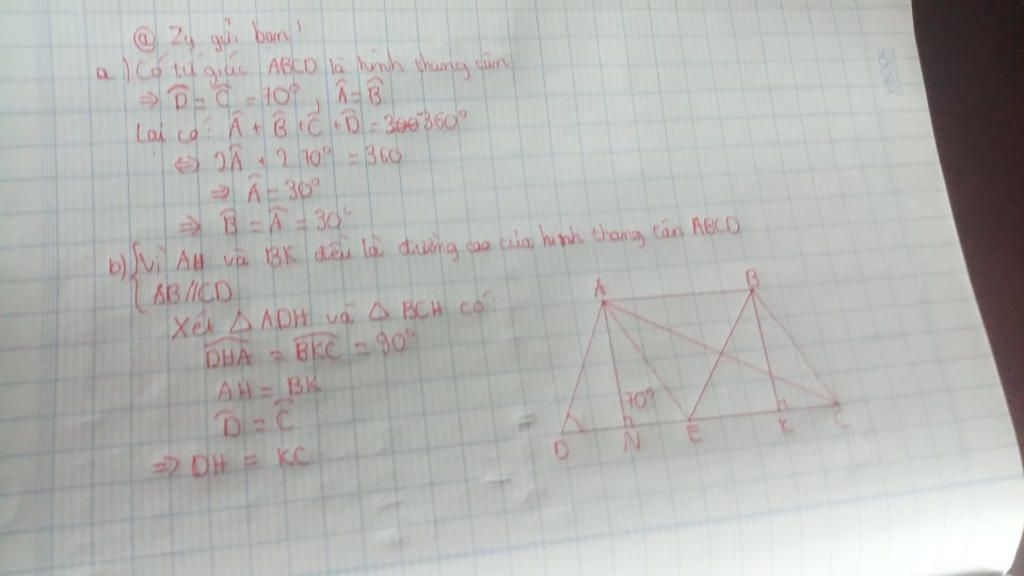 @ Zy gửi bạn!
a) Có tứ giác ABCD là hình thang cân
⇒ D̂ = Ĉ = 70°, Â = B̂
Lại có: Â + B̂ + Ĉ + D̂ = 300 360°
⇔ 2Â + 2 70° = 360
⇒ Â = 30°
⇒ B̂ = Â = 30°
b) { Vì AH và BK đều là đường cao của hình thang cân ABCD
AB//CD
Xét △ ADH và △ BCH có:
DHA = BKC = 90°
AH = BK
D̂ = Ĉ
⇒ DH = KC
A B
70°
D N E K C